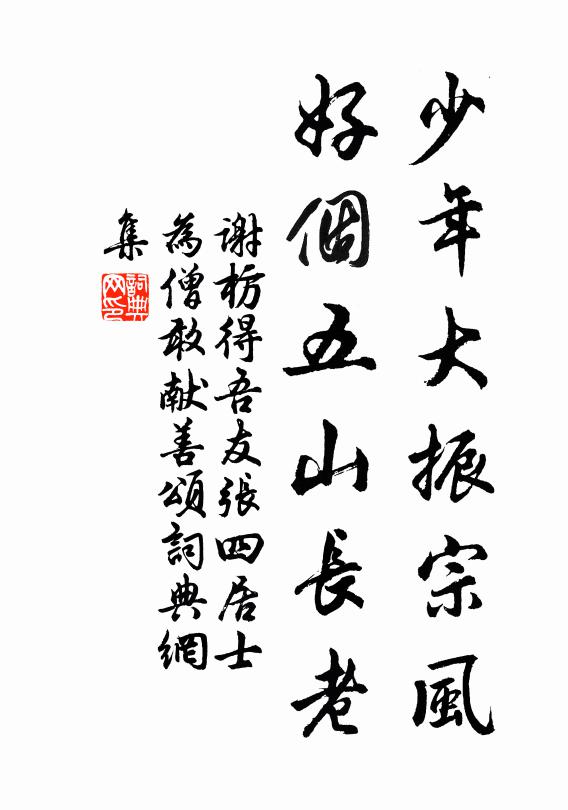 少年大振宗風
好個五山長老
谢枋得吾友張四居士
為僧敢献善頌詞典網
集
詞典
网印